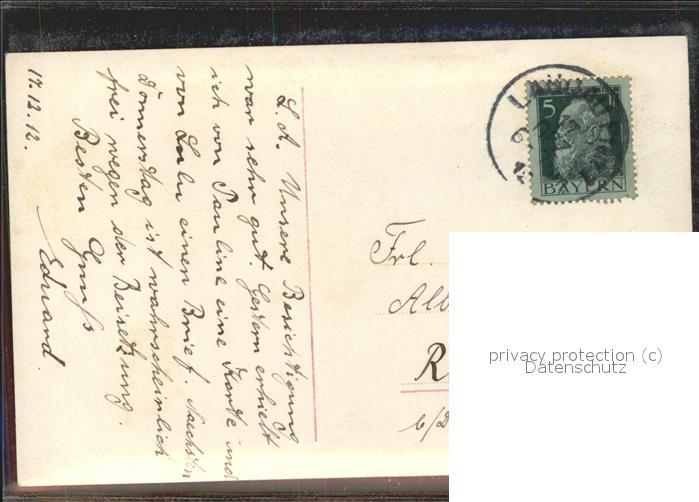 17.12.12.
L. A. Unsere Besichtigung
war sehr gut. Gestern erhielt
ich von Pauline eine Karte und
von Lulu einen Brief. Naechsten
Donnerstag ist wahrscheinlich
frei wegen der Beisetzung.
Besten Gruss
Eduard.
5
BAYERN
Frl.
Alb
R
b/D
privacy protection (c)
Datenschutz